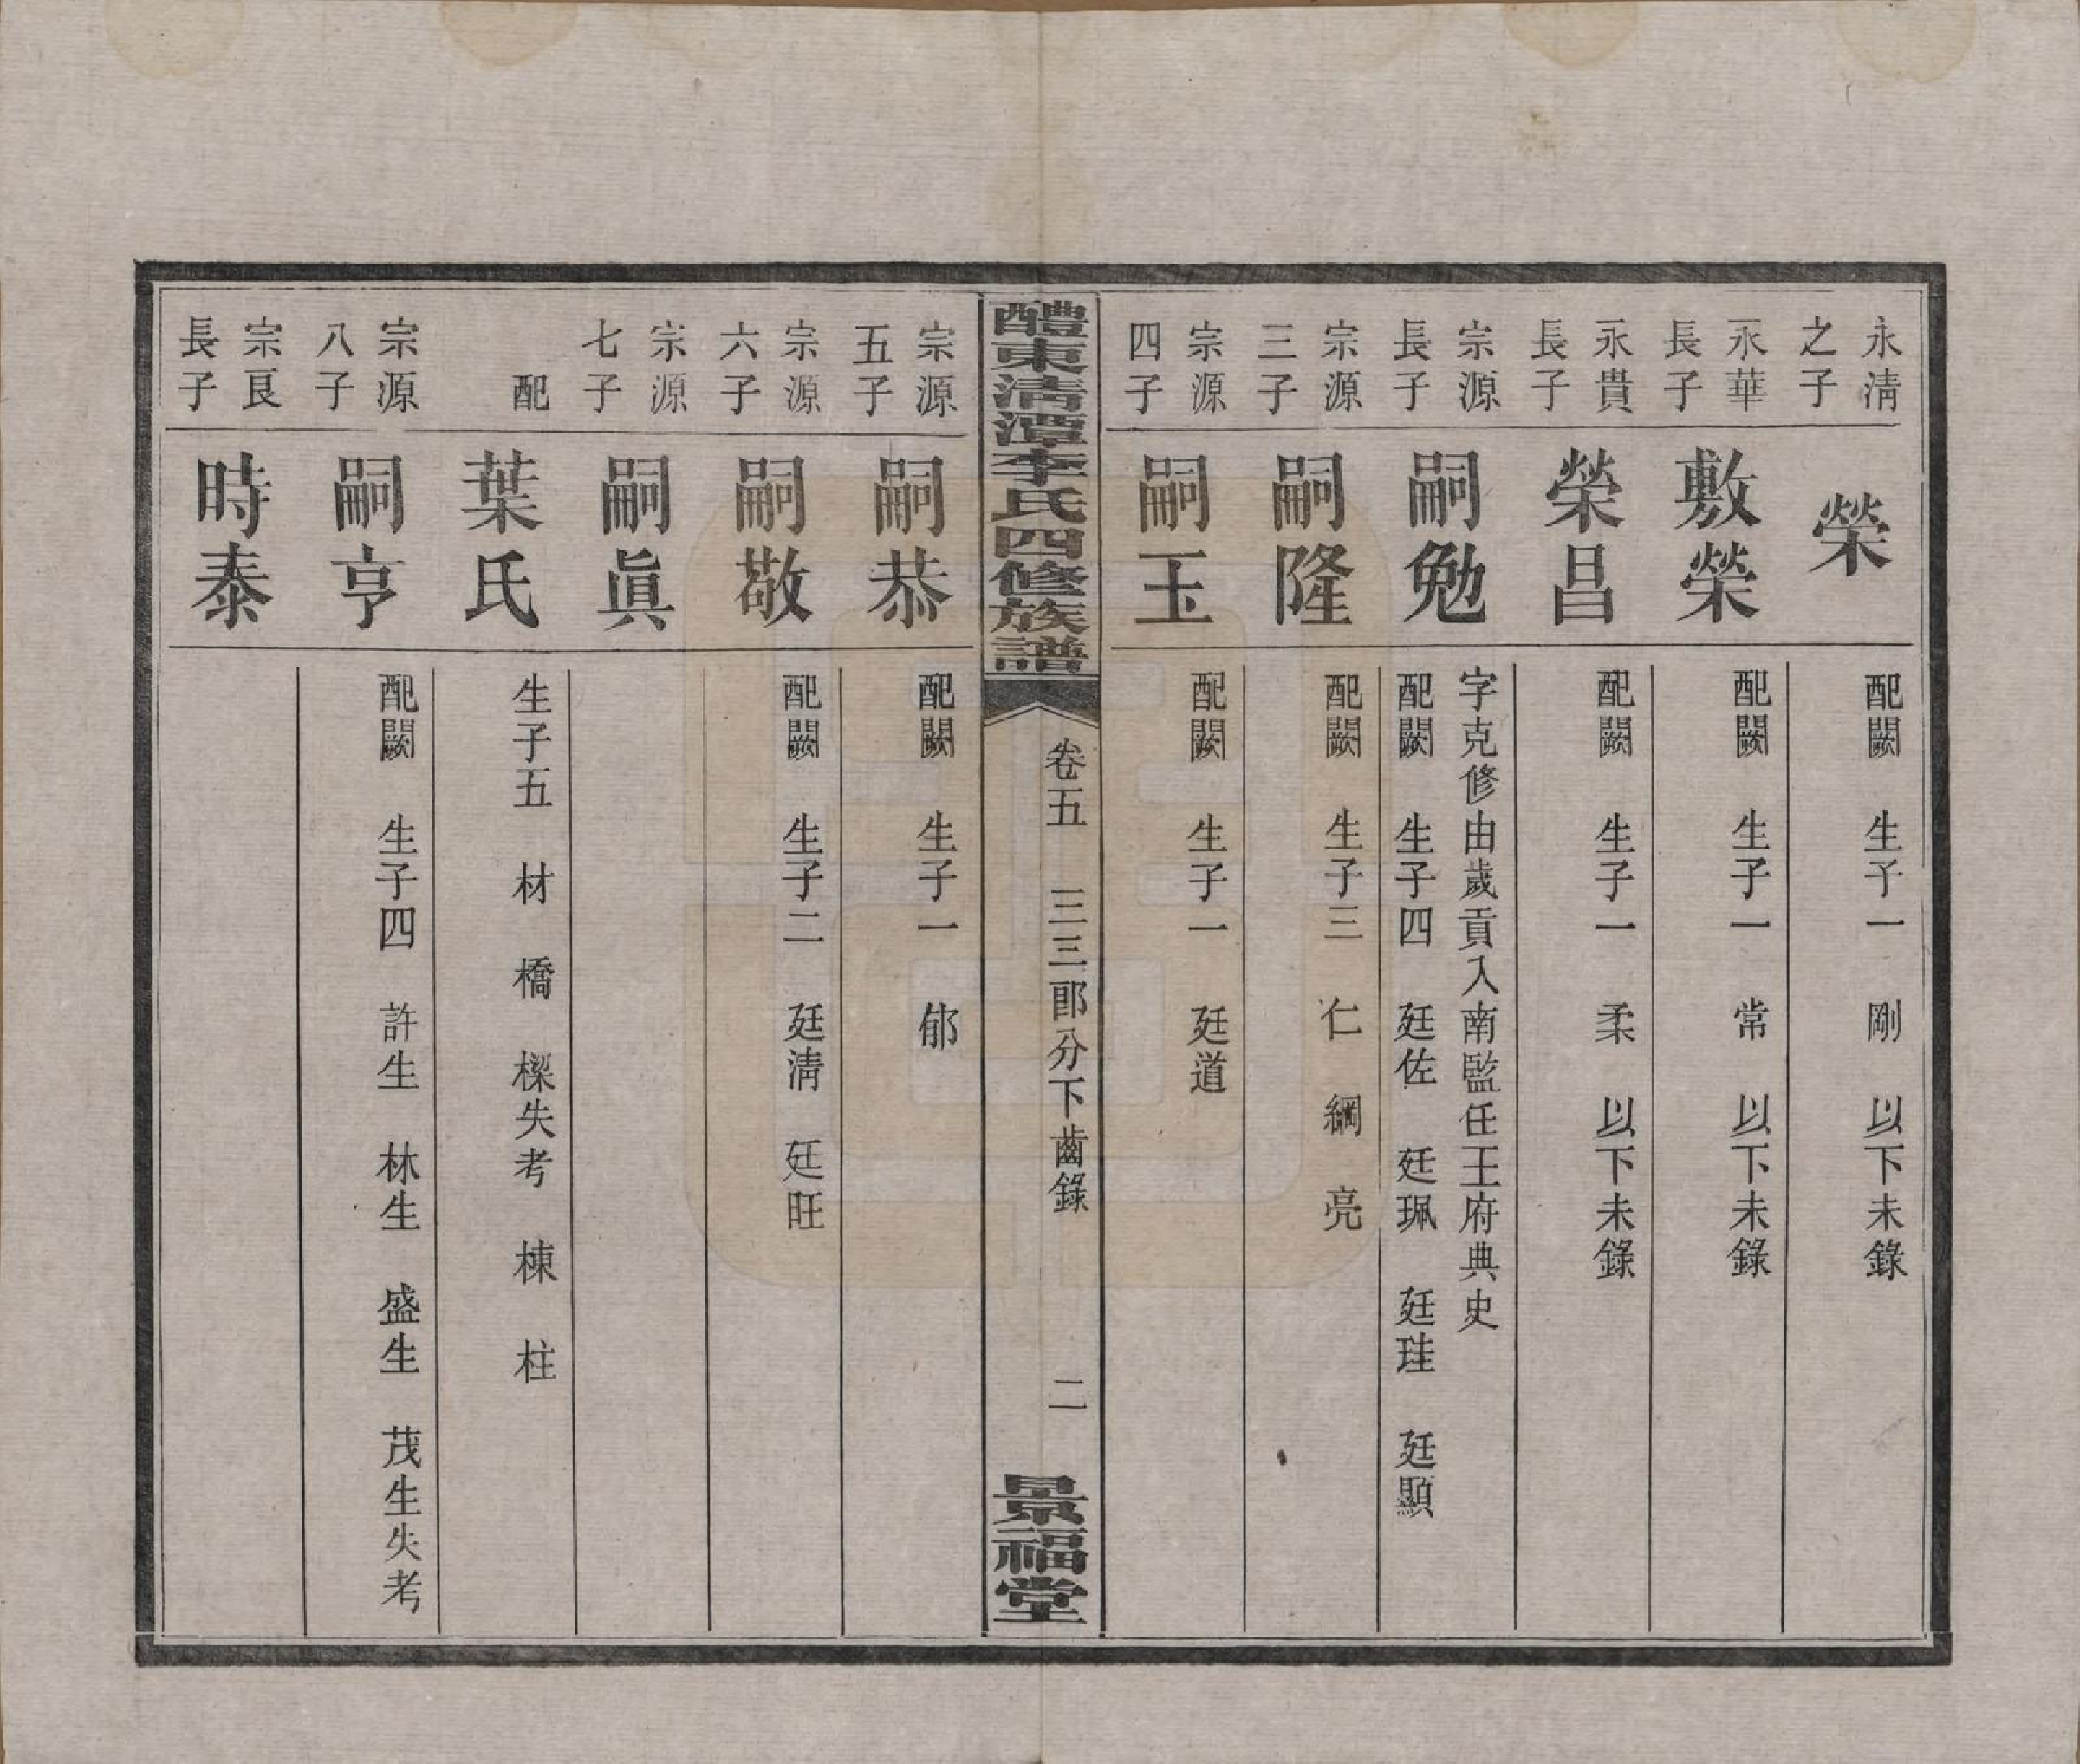 永淸
之子
榮
配闕 生子一 剛 以下未錄
永華
長子
敷榮
配闕 生子一 常 以下未錄
永貴
長子
榮昌
配闕 生子一 柔 以下未錄
宗源
長子
嗣勉
字克修由歲貢入南監任王府典史
配闕 生子四 廷佐 廷珮 廷珪 廷顯
宗源
三子
嗣隆
配闕 生子三 仁 綱 亮
宗源
四子
嗣玉
配闕 生子一 廷道
醴東淸潭李氏四修族譜
卷五 三三郎分下齒錄 二
景福堂
宗源
五子
嗣恭
配闕 生子一 郁
宗源
六子
嗣敬
配闕 生子二 廷淸 廷旺
宗源
七子
嗣眞
配
葉氏
生子五 材 橋 樑失考 棟 柱
宗源
八子
嗣亨
配闕 生子四 許生 林生 盛生 茂生失考
宗良
長子
時泰